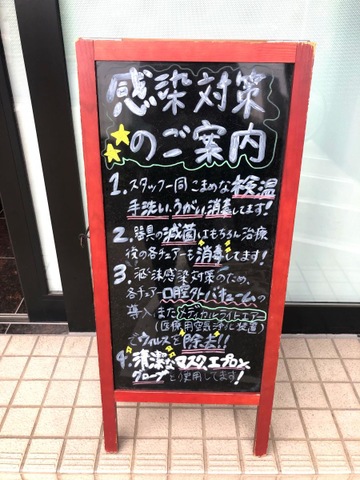 感染対策
のご案内
1. スタッフ一同 こまめな検温
手洗い、うがい、消毒してます!
2. 器具の滅菌はもちろん治療
後の各チェアーも消毒してます!
3. 飛沫感染対策のため、
各チェアー口腔外バキュームの
導入、また メディカルライトエアー
(医療用空気浄化装置)
でウィルスを除去!!
4. 清潔なマスク、エプロン
グローブを使用してます!